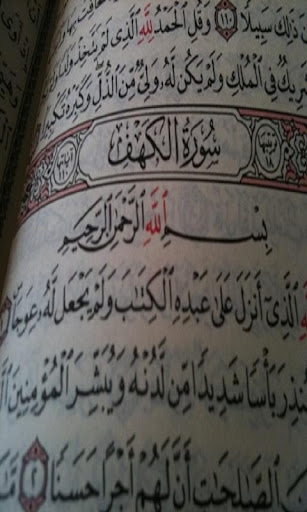 ذَٰلِكَ سَبِيلًا ١١٠ وَقُلِ ٱلْحَمْدُ لِلَّهِ ٱلَّذِى لَمْ يَتَّخِذْ وَلَدًا
شَرِيكٌ فِى ٱلْمُلْكِ وَلَمْ يَكُن لَّهُۥ وَلِىٌّ مِّنَ ٱلذُّلِّ وَكَبِّرْهُ تَكْبِيرًا
سُورَةُ ٱلْكَهْفِ
بِسْمِ ٱللَّهِ ٱلرَّحْمَٰنِ ٱلرَّحِيمِ
ٱلَّذِىٓ أَنزَلَ عَلَىٰ عَبْدِهِ ٱلْكِتَٰبَ وَلَمْ يَجْعَل لَّهُۥ عِوَجَا
لِّيُنذِرَ بَأْسًا شَدِيدًا مِّن لَّدُنْهُ وَيُبَشِّرَ ٱلْمُؤْمِنِينَ
ٱلصَّٰلِحَٰتِ أَنَّ لَهُمْ أَجْرًا حَسَنًا ٢